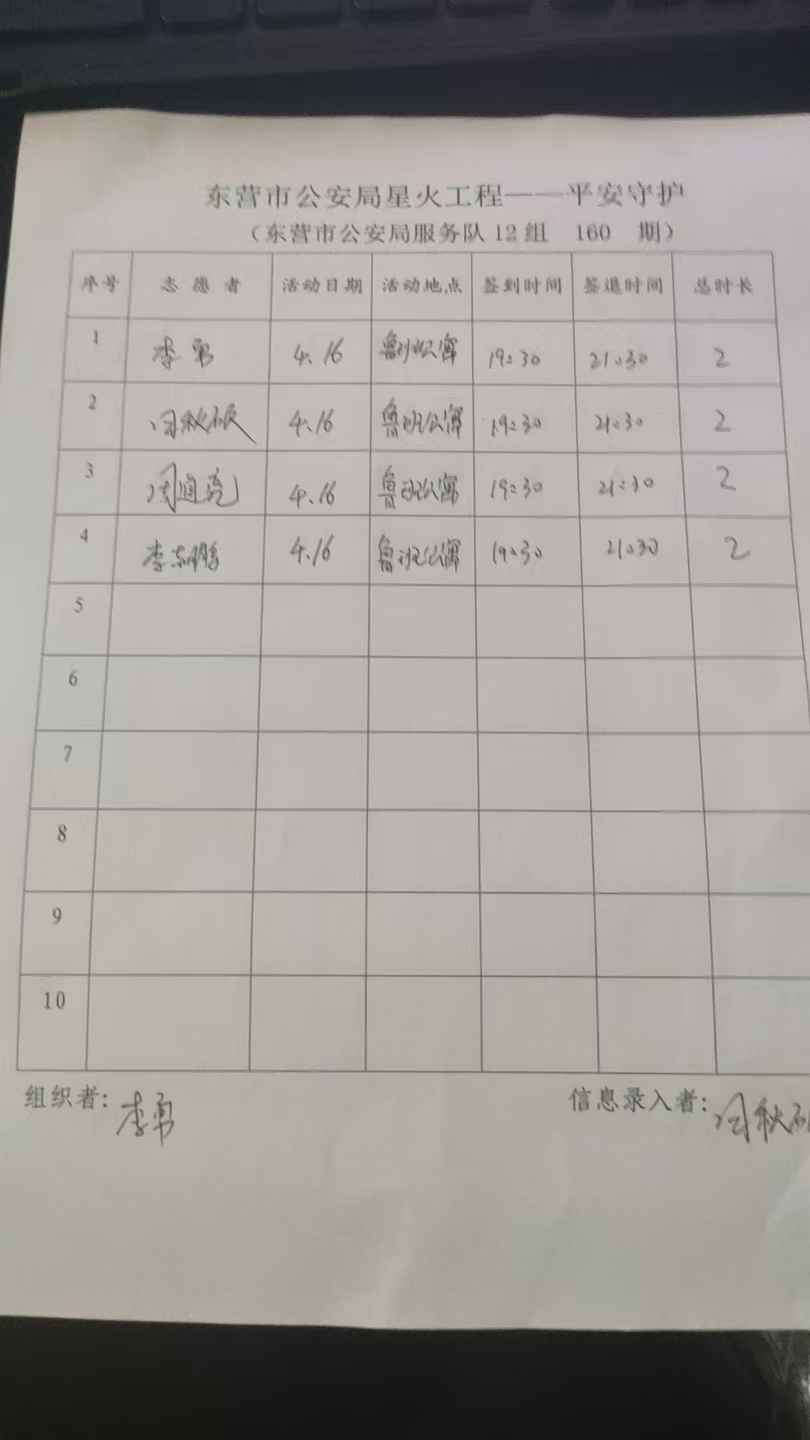 东营市公安局星火工程——平安守护
（东营市公安局服务队12组 160 期）
序号 志愿者 活动日期 活动地点 签到时间 签退时间 总时长
1 李勇 4.16 鲁班公寓 19:30 21:30 2
2 闫秋 4.16 鲁班公寓 19:30 21:30 2
3 周通亮 4.16 鲁班公寓 19:30 21:30 2
4 李鹏 4.16 鲁班公寓 19:30 21:30 2
5
6
7
8
9
10
组织者：李勇 信息录入者：闫秋